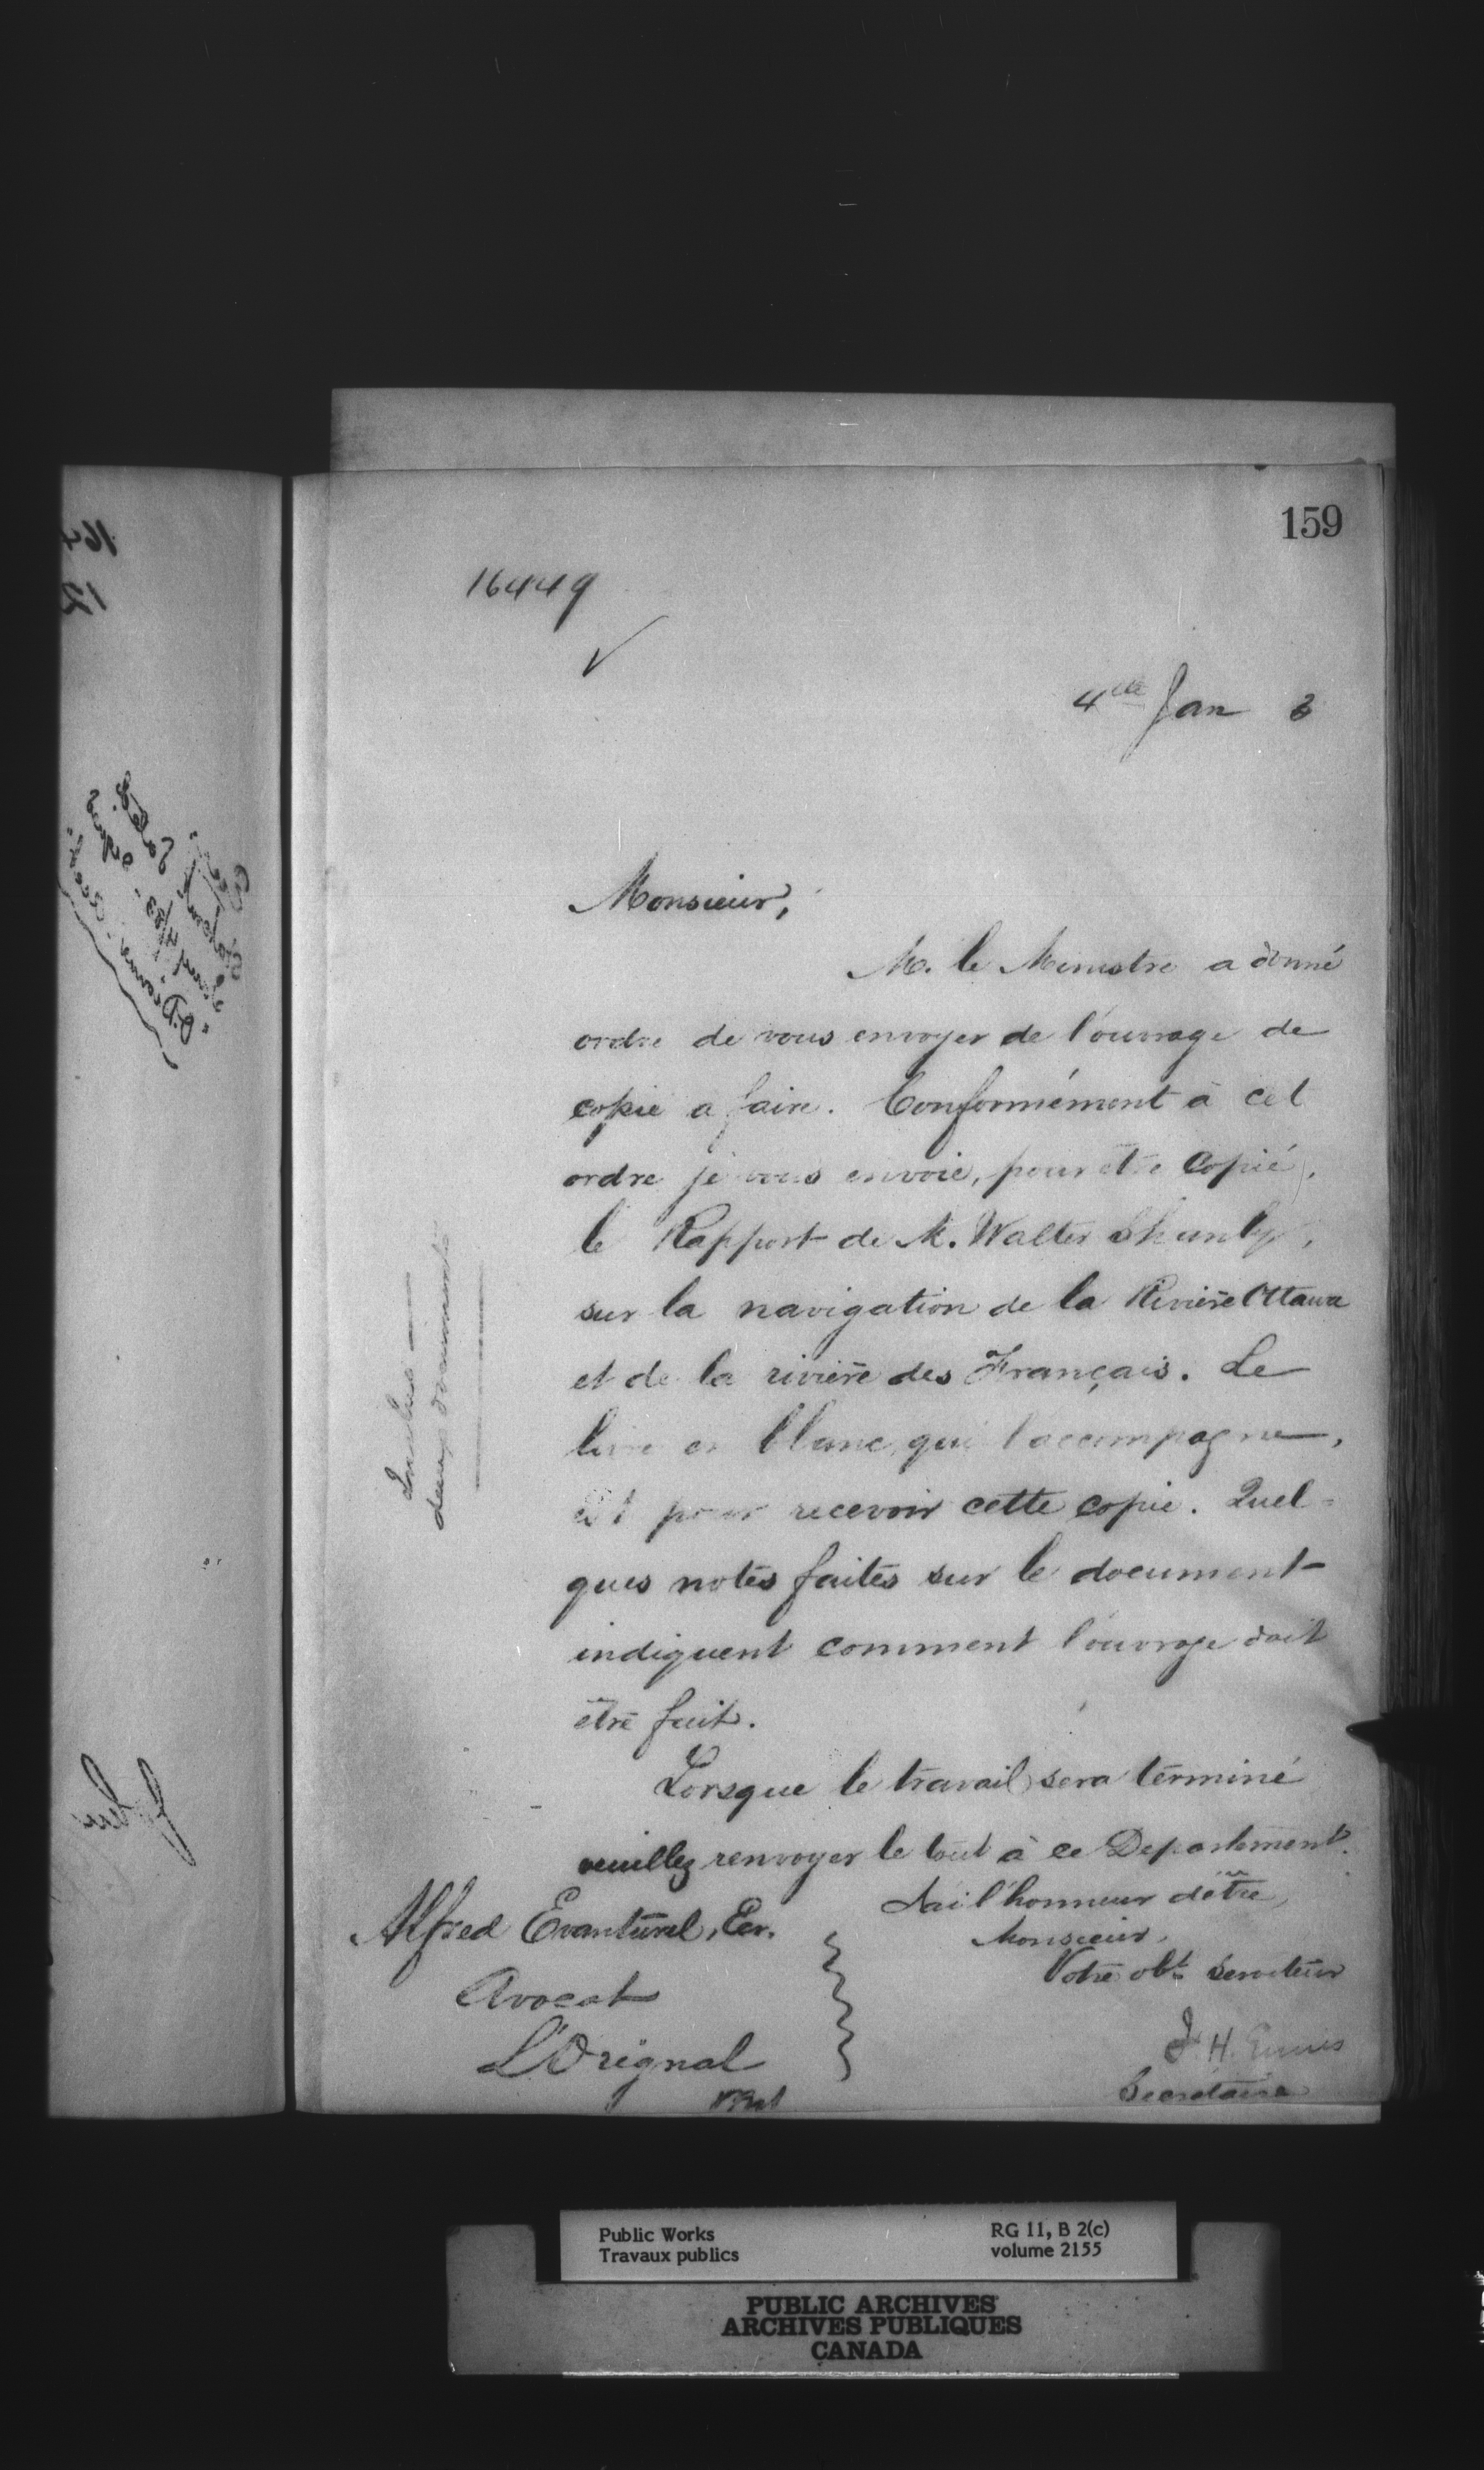 159
16449
4th Jan 3
Monsieur,
M. le Ministre a donné
ordre de vous envoyer de l'ouvrage de
copie a faire. Conformément à cet
ordre je vous envoie, pour être Copié,
le Rapport de M. Walter Shanly,
sur la navigation de la Rivière Ottawa
et de la rivière des Français. Le
livre en blanc, qui l'accompagne,
est pour recevoir cette copie. Quel-
ques notes faites sur le document
indiquent comment l'ouvrage doit
être fait.
Lorsque le travail sera terminé
veuillez renvoyer le tout à ce Department.
J'ai l'honneur d'être,
Monsieur,
Votre obt. Serviteur
F. H. Ennis
Secrétaire
Alfred Evanturel, Ecr.
Avocat
L'Orignal
deux documents
Public Works
Travaux publics
RG 11, B 2(c)
volume 2155
PUBLIC ARCHIVES
ARCHIVES PUBLIQUES
CANADA